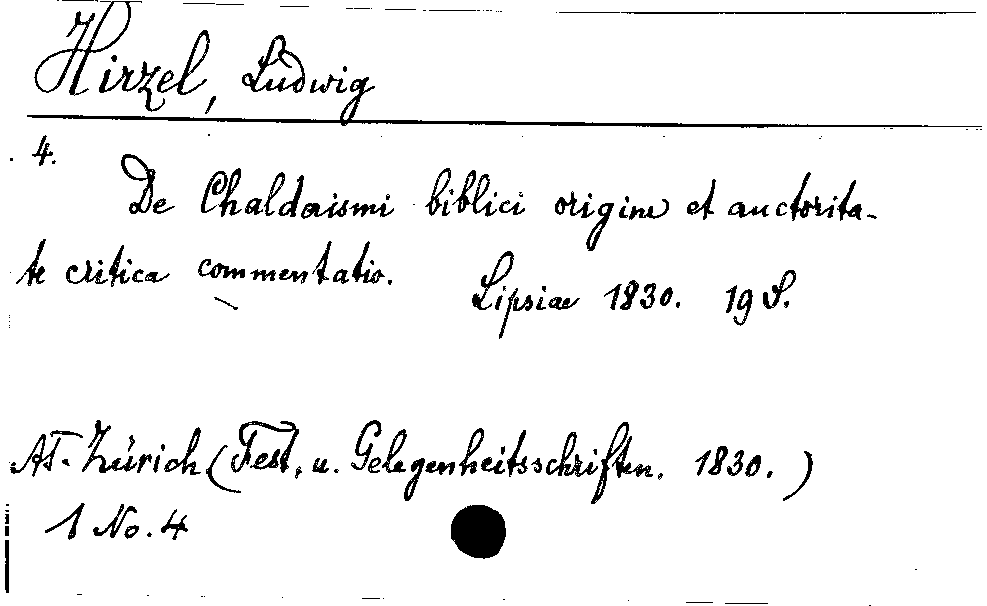 Hirzel, Ludwig
4.
De Chaldaismi biblici origine et auctorita-
te critica commentatio.
Lipsiae 1830. 19 S.
AT-Zürich (Fest, u. Gelegenheitsschriften. 1830.)
1 No. 4